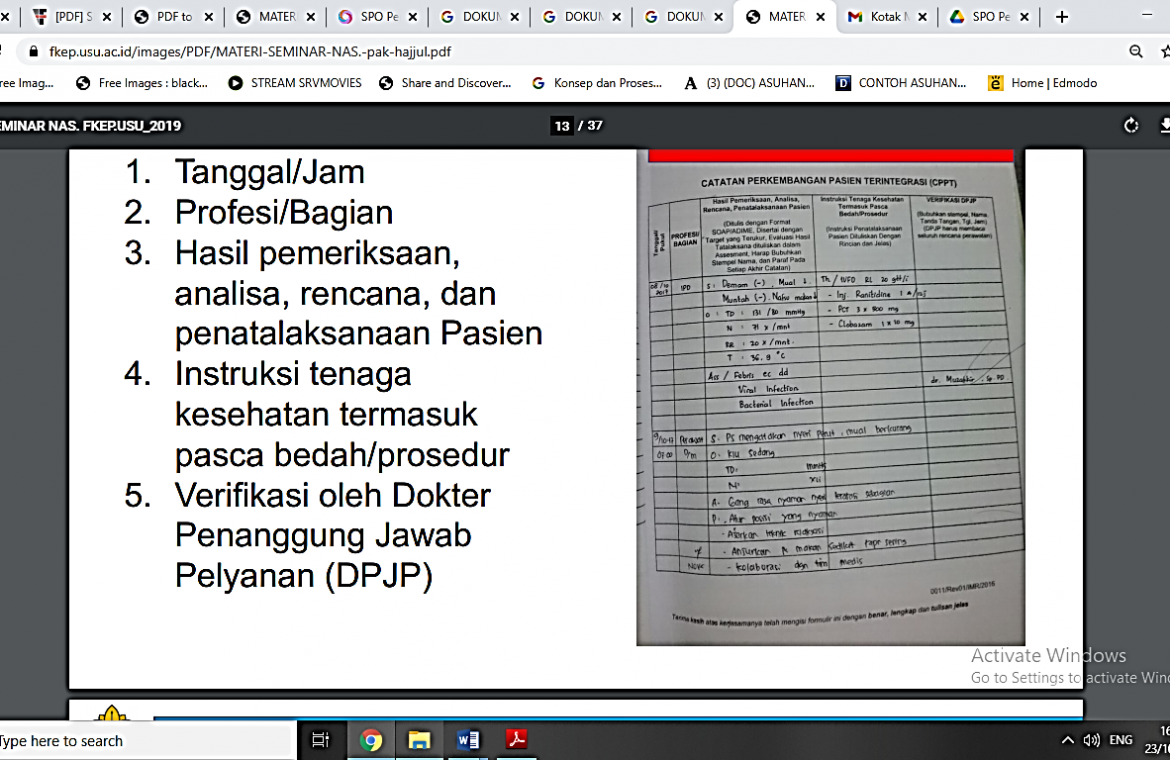 [PDF] S
PDF to
MATER
SPO Pe
DOKUN
DOKUN
DOKUN
MATER
Kotak
SPO Pe
fkep.usu.ac.id/images/PDF/MATERI-SEMINAR-NAS.-pak-hajjul.pdf
ree Imag...
Free Images : black...
STREAM SRVMOVIES
Share and Discover...
Konsep dan Proses...
(3) (DOC) ASUHAN...
CONTOH ASUHAN...
Home | Edmodo
EMINAR NAS. FKEP.USU_2019
13 / 37
1. Tanggal/Jam
2. Profesi/Bagian
3. Hasil pemeriksaan,
analisa, rencana, dan
penatalaksanaan Pasien
4. Instruksi tenaga
kesehatan termasuk
pasca bedah/prosedur
5. Verifikasi oleh Dokter
Penanggung Jawab
Pelyanan (DPJP)
CATATAN PERKEMBANGAN PASIEN TERINTEGRASI (CPPT)
Tanggal/
Pukul
PROFESI/
BAGIAN
Hasil Pemeriksaan, Analisa,
Rencana, Penatalaksanaan Pasien
(Ditulis dengan Format
SOAP/ADIME, Disertai dengan
Target yang Terukur, Evaluasi Hasil
Tatalaksana dituliskan dalam
Assesment, Harap Bubuhkan
Stempel Nama, dan Paraf Pada
Setiap Akhir Catatan)
Instruksi Tenaga Kesehatan
Termasuk Pasca
Bedah/Prosedur
(Instruksi Penatalaksanaan
Pasien Dituliskan Dengan
Rincian dan Jelas)
VERIFIKASI DPJP
(Bubuhkan stempel, Nama,
Tanda Tangan, Tgl, Jam)
(DPJP harus membaca
seluruh rencana perawatan)
IPD
S : Demam (-), Mual
Muntah (-).
O : TD : 131 /80 mmHg
N : 71 x /mnt
RR : 20 x /mnt.
T : 36. 8 °C
Ass / Febris ec dd
Viral Infection
Bacterial Infection
Th / IVFD RL 20 gtt/i
- Inj. Ranitidine 1
- PCT 3 x 500 mg
- Clobazam 1 x 10 mg
S. Ps mengatakan nyeri mual berkurang
O. Ku Sedang
TD. mmHg
N. x/i
A. Gang rasa nyaman nyeri teratasi sebagian
P. Atur posisi yang nyaman
- Ajarkan teknik relaksasi
- Anjurkan makan sedikit tapi sering
- kolaborasi dgn tim medis
0011/Rev01/IMR/2016
Terima kasih atas kerjasamanya telah mengisi formulir ini dengan benar, lengkap dan tulisan jelas
Activate Windows
Go to Settings to activate Win
Type here to search
ENG
16
23/1